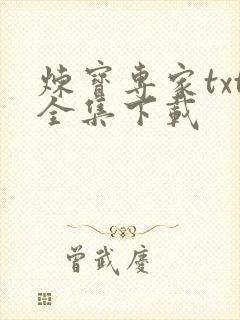 煉寶專家txt
全集下載
曾武慶